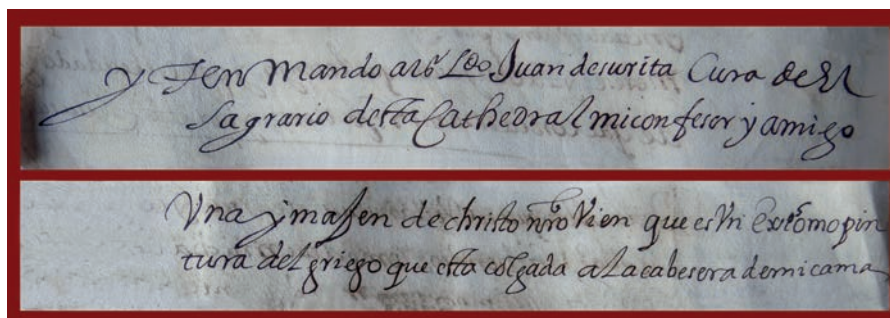 yten mando al sr Ldo Juan de surita Cura de El
sagrario desta Cathedral mi confesor y amigo
Vna ymajen de christo nro Vien que es Vn Exceomo pin
tura del griego que esta colgada a la cabesera de mi cama